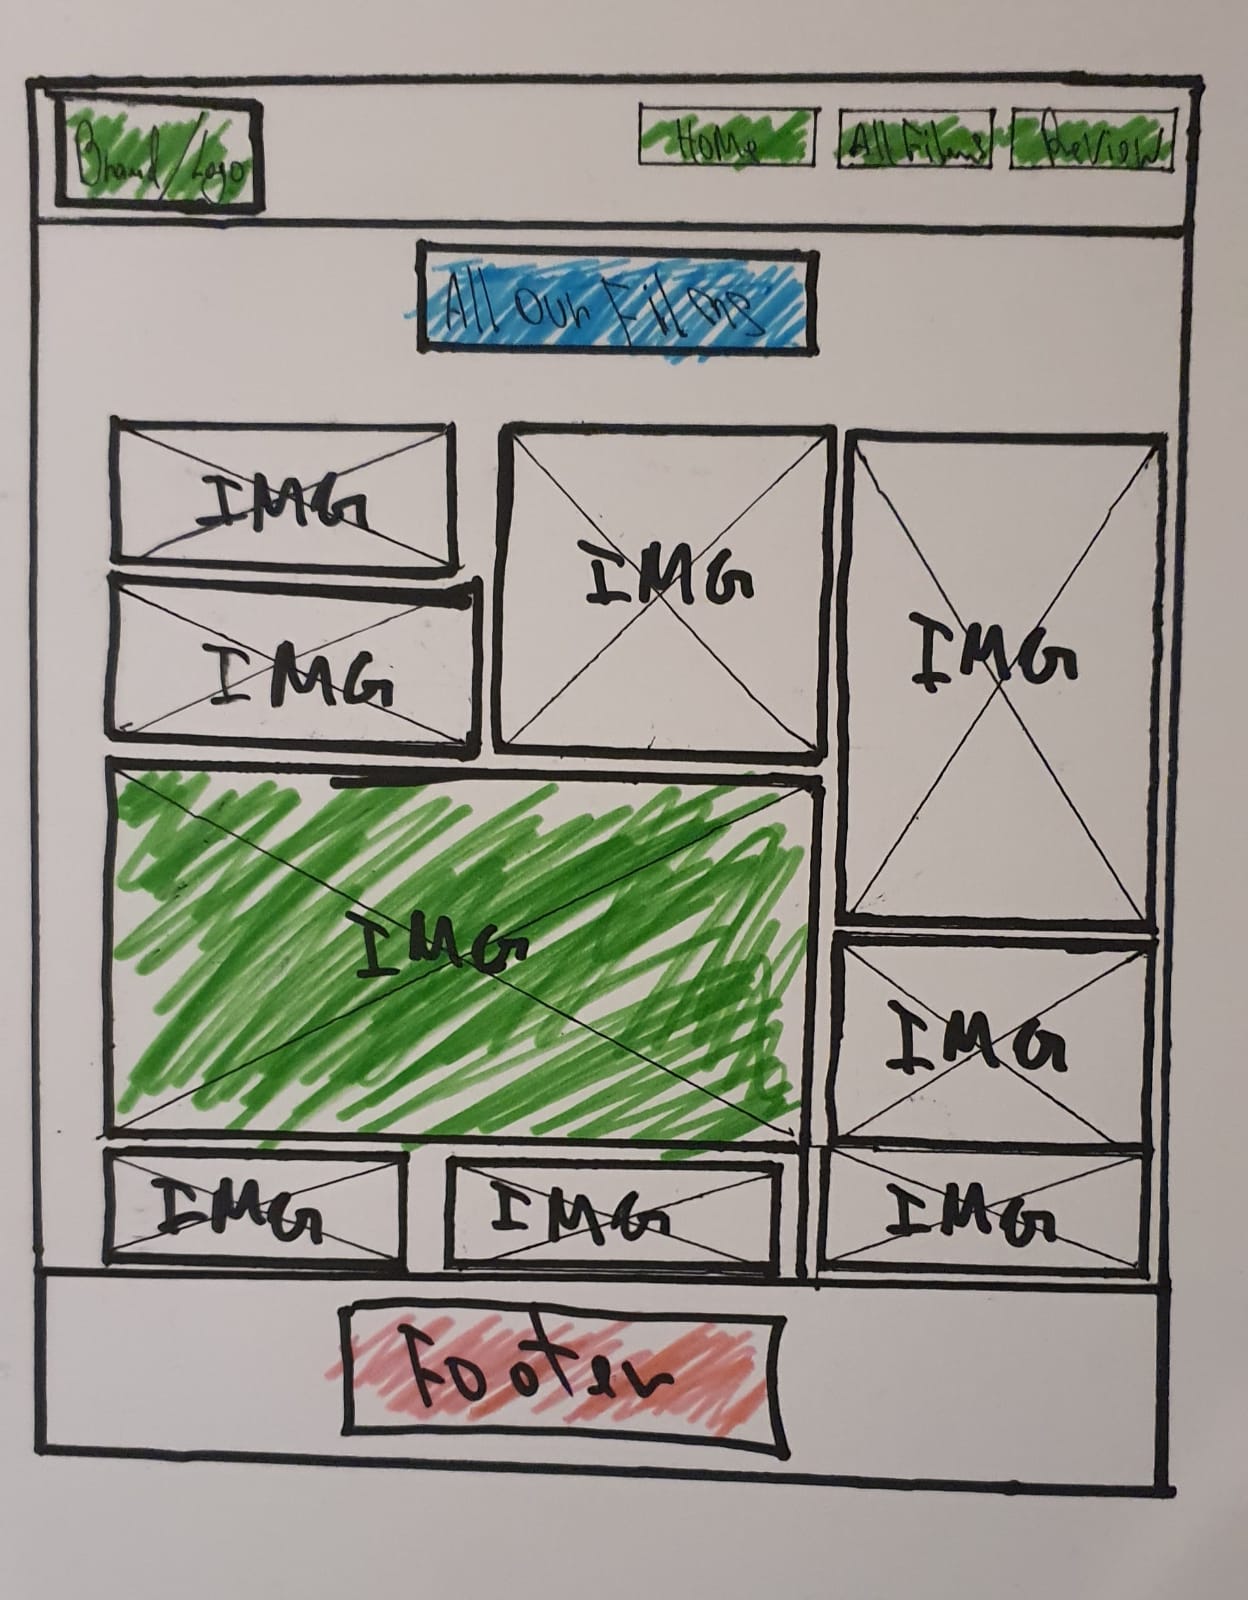 Brand/Logo
HoMe
All Films
ReView
All our Films
IMG
IMG
IMG
IMG
IMG
IMG
IMG
IMG
IMG
Footer